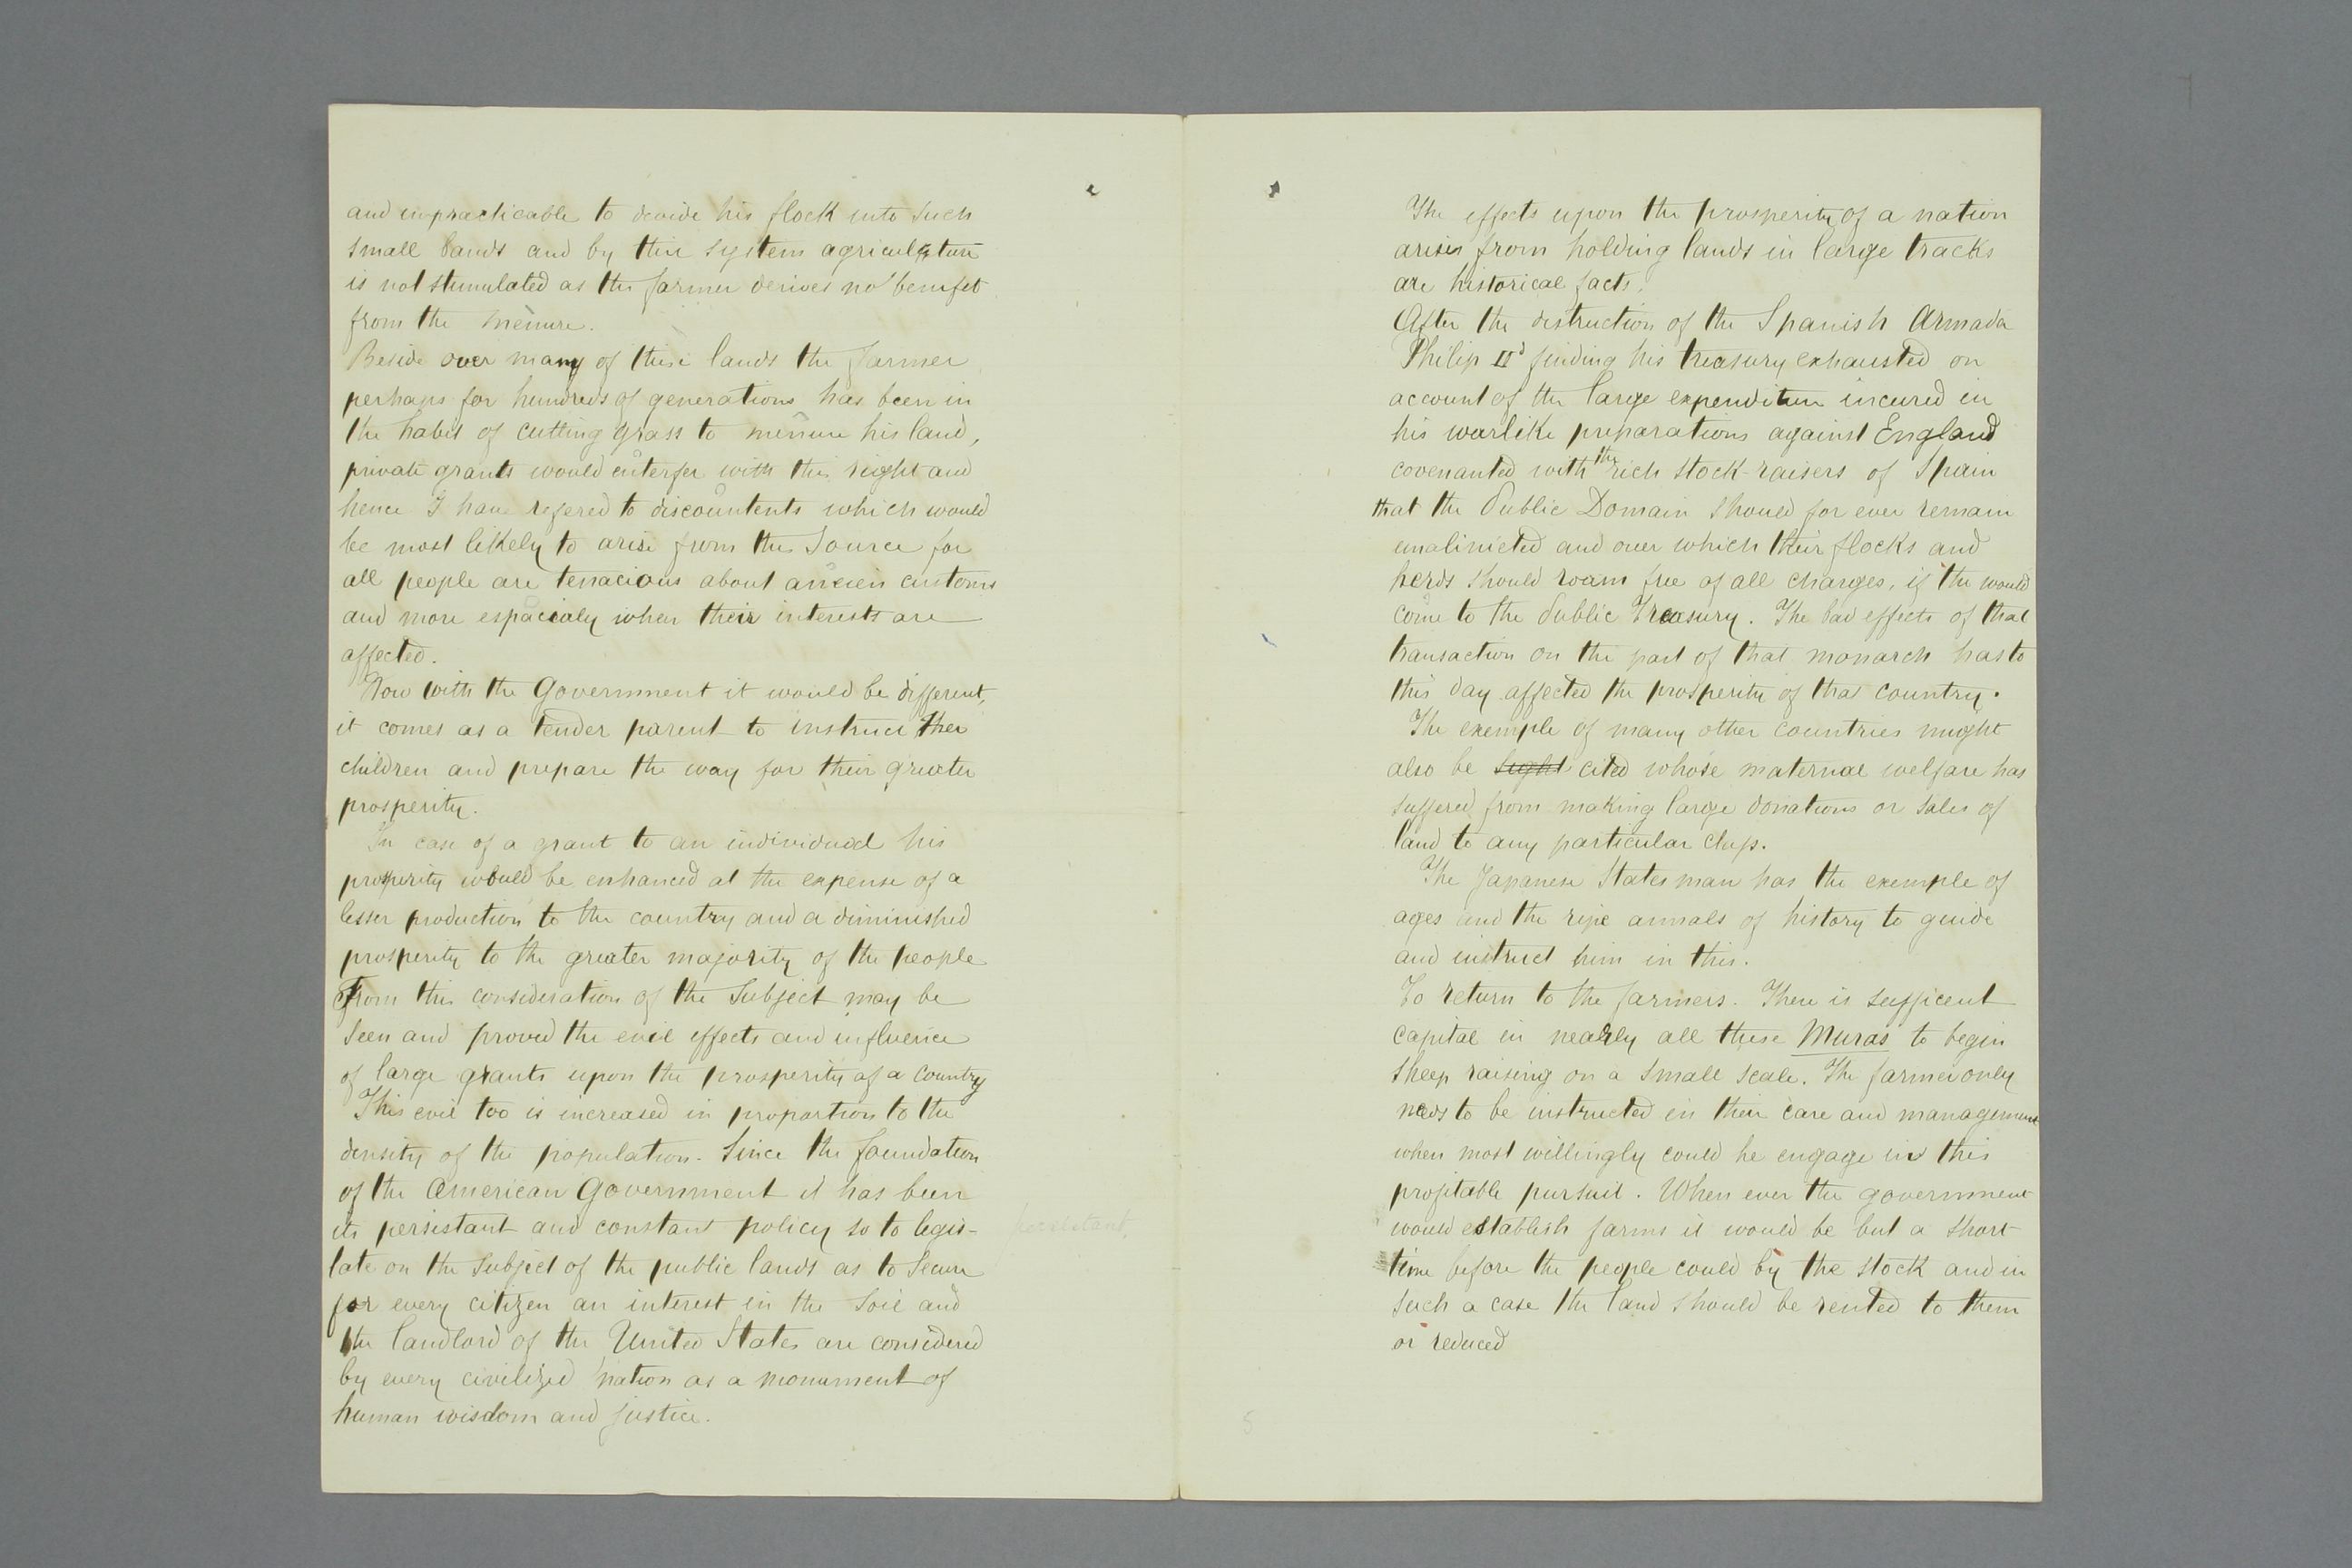 and impracticable to devide his flock into such
small bands and by this system agriculture
is not stimulated as the farmer derives no benifit
from the menure.
Beside over many of these lands the farmer
perhaps for hundreds of generations has been in
the habit of cutting grass to menure his land,
private grants would enterfer with this right and
hence I have refered to discountents which would
be most likely to arise from this source for
all people are tenacious about ancien customs
and more espacialy when their interests are
affected.
Now with the Government it would be different,
it comes as a tender parent to instruct
children and prepare the way for their greater
prosperity.
In case of a grant to an individual his
prosperity would be enhanced at the expense of a
lesser production to the country and a diminished
prosperity to the greater majority of the people
From this consideration of the subject may be
seen and proved the evil effects and influence
of large grants upon the prosperity of a country
This evil too is increased in proportion to the
density of the population. Since the foundation
of the American Government it has been
its persistant and constant policy so to legis-
late on the subject of the public lands as to secure
for every citizen an interest in the soil and
the landlord of the United States are considered
by every civilized nation as a monument of
human wisdom and justice.
The effects upon the prosperity of a nation
arisin from holding lands in large tracks
are historical facts.
After the distruction of the Spanish Armada
Philip IId finding his treasury exhausted on
account of the large expenditure incured in
his warlike preparations against England
covenanted with the rich stock-raisers of Spain
that the Public Domain should for ever remain
and over which their flocks and
herds should roam free of all charges, if the would
come to the Public Treasury. The bad effects of that
transaction on the part of that monarch has to
this day affected the prosperity of that country.
The exemple of many other countries might
also be cited whose maternal welfare has
suffered from making large donations or sales of
land to any particular class.
The Japanese States man has the exemple of
ages and the ripe annals of history to guide
and instruct him in this.
To return to the farmers. There is sufficent
capital in nearly all these Muras to begin
sheep raising on a small scale. The farmer only
needs to be instructed in their care and management
when most willingly could he engage in this
profitable pursuit. When ever the government
would establish farms it would be but a short
time before the people could by the stock and in
such a case the land should be rented to them
or reduced